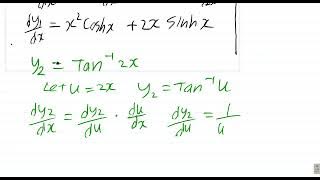 dy₁/dx = x² Coshx + 2x Sinhx
y₂ = Tan⁻¹ 2x
Let u = 2x y₂ = Tan⁻¹ u
dy₂/dx = dy₂/du · du/dx dy₂/du = 1/u